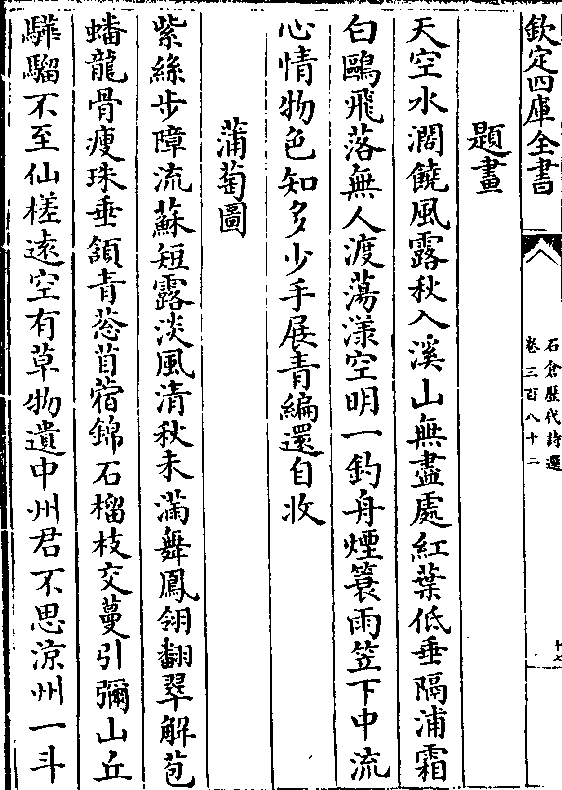 欽定四庫全書
石倉歷代詩選
卷三百八十二
十七
題畫
天空水濶饒風露秋入溪山無盡處紅葉低垂隔浦霜
白鷗飛落無人渡蕩漾空明一釣舟煙簑雨笠下中流
心情物色知多少手展青編還自收
蒲萄圖
紫絲步障流蘇短露淡風清秋未滿舞鳳翎翻翠解苞
蟠龍骨瘦珠垂頷青葱苜蓿錦石榴枝交蔓引彌山丘
驊騮不至仙槎逺空有草物遺中州君不思涼州一斗